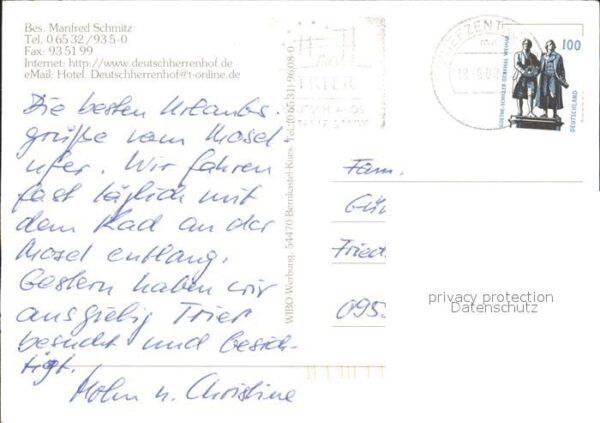 Bes. Manfred Schmitz
Tel. 0 65 32 / 93 5-0
Fax: 93 51 99
Internet: http://www.deutschherrenhof.de
eMail: Hotel. Deutschherrenhof@t-online.de
Die besten Urlaubs-
grüße vom Mosel
ufer. Wir fahren
fast täglich mit
dem Rad an der
Mosel entlang.
Gestern haben wir
ausgiebig Trier
besucht und besich-
tigt.
u. Christine
WIBO Werbung, 54470 Bernkastel-Kues, Tel. (0 65 31) 96 08-0
TRIER
BRIEFZENTRUM
GOETHE-SCHILLER-DENKMAL WEIMAR
100
DEUTSCHLAND
Fam.
Gün
Fried
095
privacy protection
Datenschutz